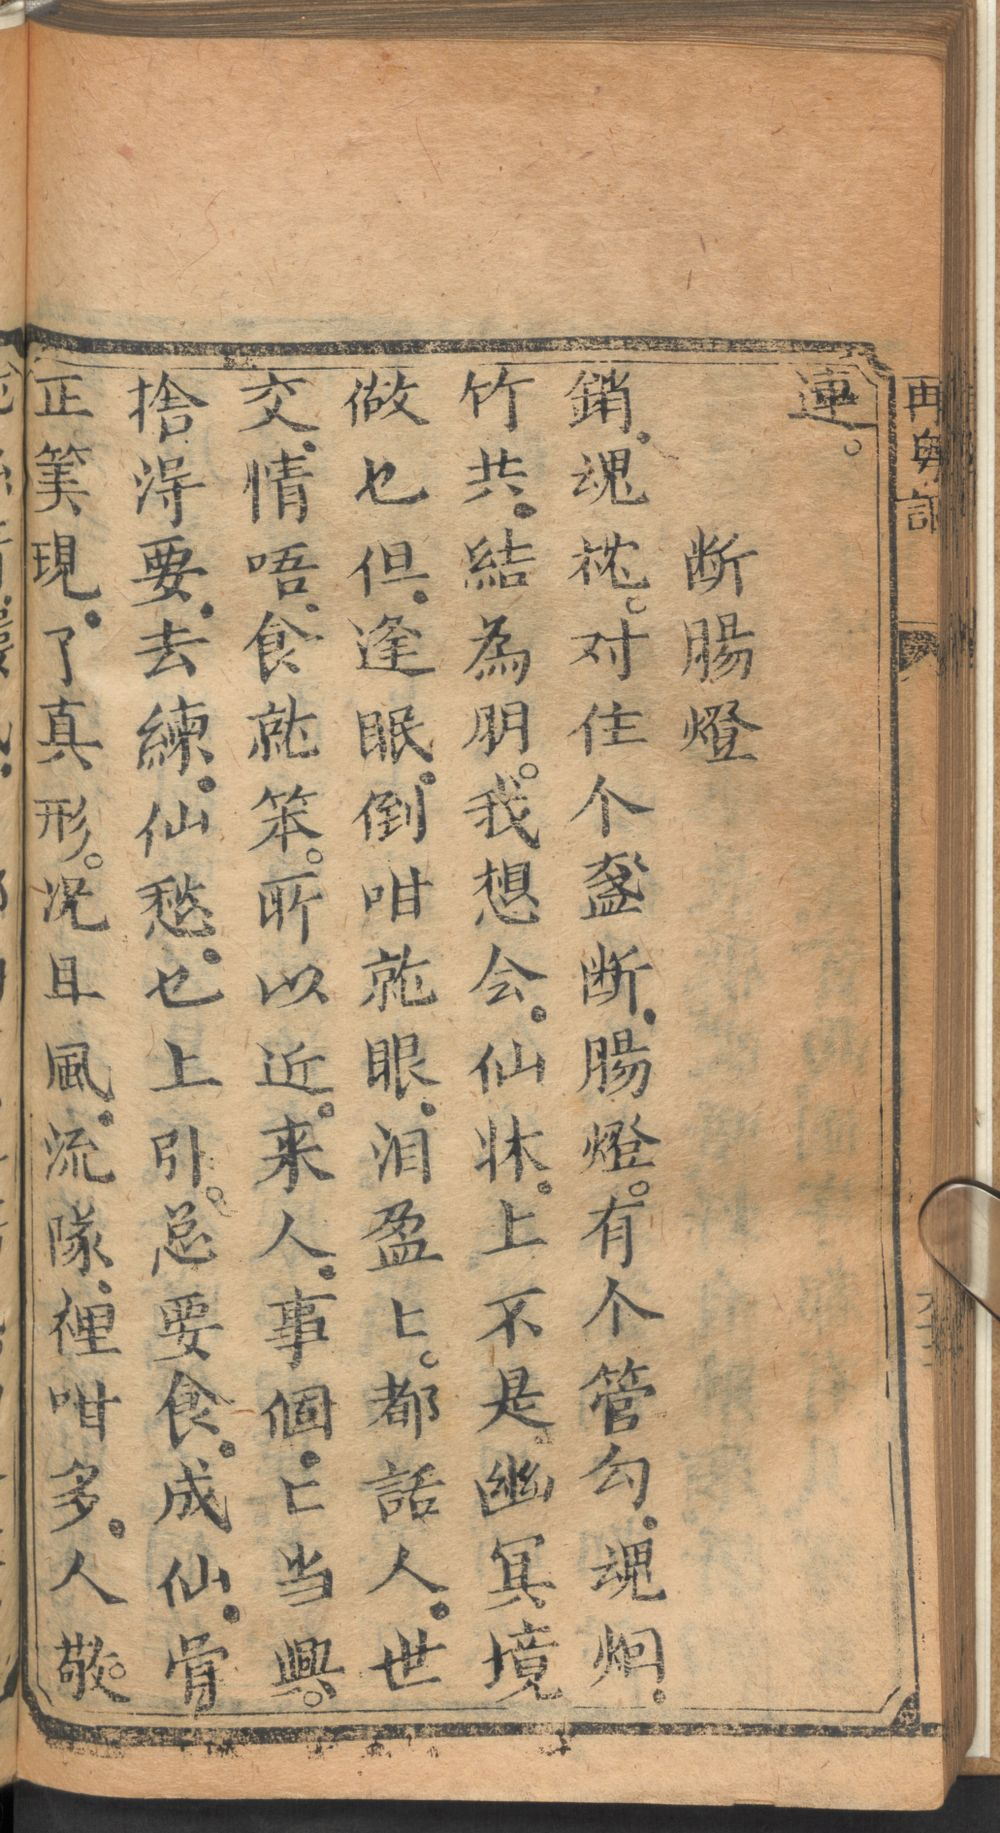 連。
断腸燈
銷魂枕。对住个盞断腸燈。有个管勾魂炯
竹共結為朋。我想会仙牀上不是幽冥境
做乜但逢眠倒咁就眼泪盈匕。都話人世
交情唔食就笨。所以近来人事個匕当興。
捨淂要去練仙愁乜上引。总要食成仙骨
正筭現了真形。况且風流隊裡咁多人敬。
再粤謳